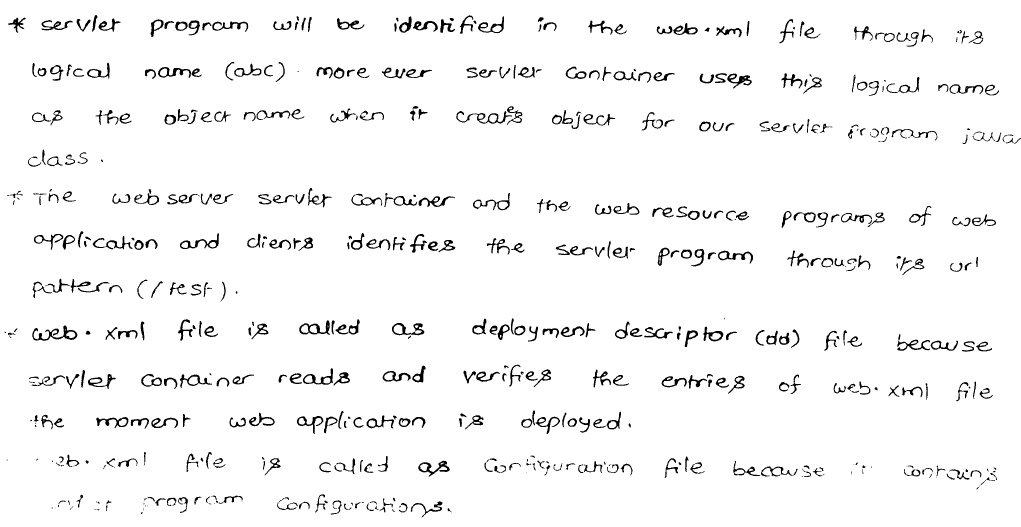 * servlet program will be identified in the web.xml file through its
logical name (abc). more ever servlet container uses this logical name
as the object name when it creates object for our servlet program java
class.
* The web server servlet container and the web resource programs of web
application and clients identifies the servlet program through its url
pattern (/test).
* web.xml file is called as deployment descriptor (dd) file because
servlet container reads and verifies the entries of web.xml file
the moment web application is deployed.
file is called as Configuration file because it contains
program Configurations.